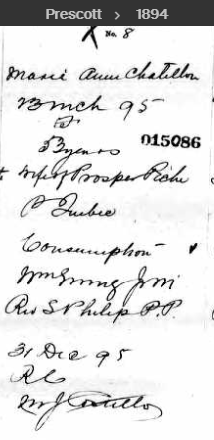 Prescott › 1894
X No. 8
Marie Ann Chatillon
23 Mch 95
F
53 years 015086
Wife of Prosper Riche
P Quebec
Consumption
Wm
Rev S Philip P.P.
31 Dec 95
RC